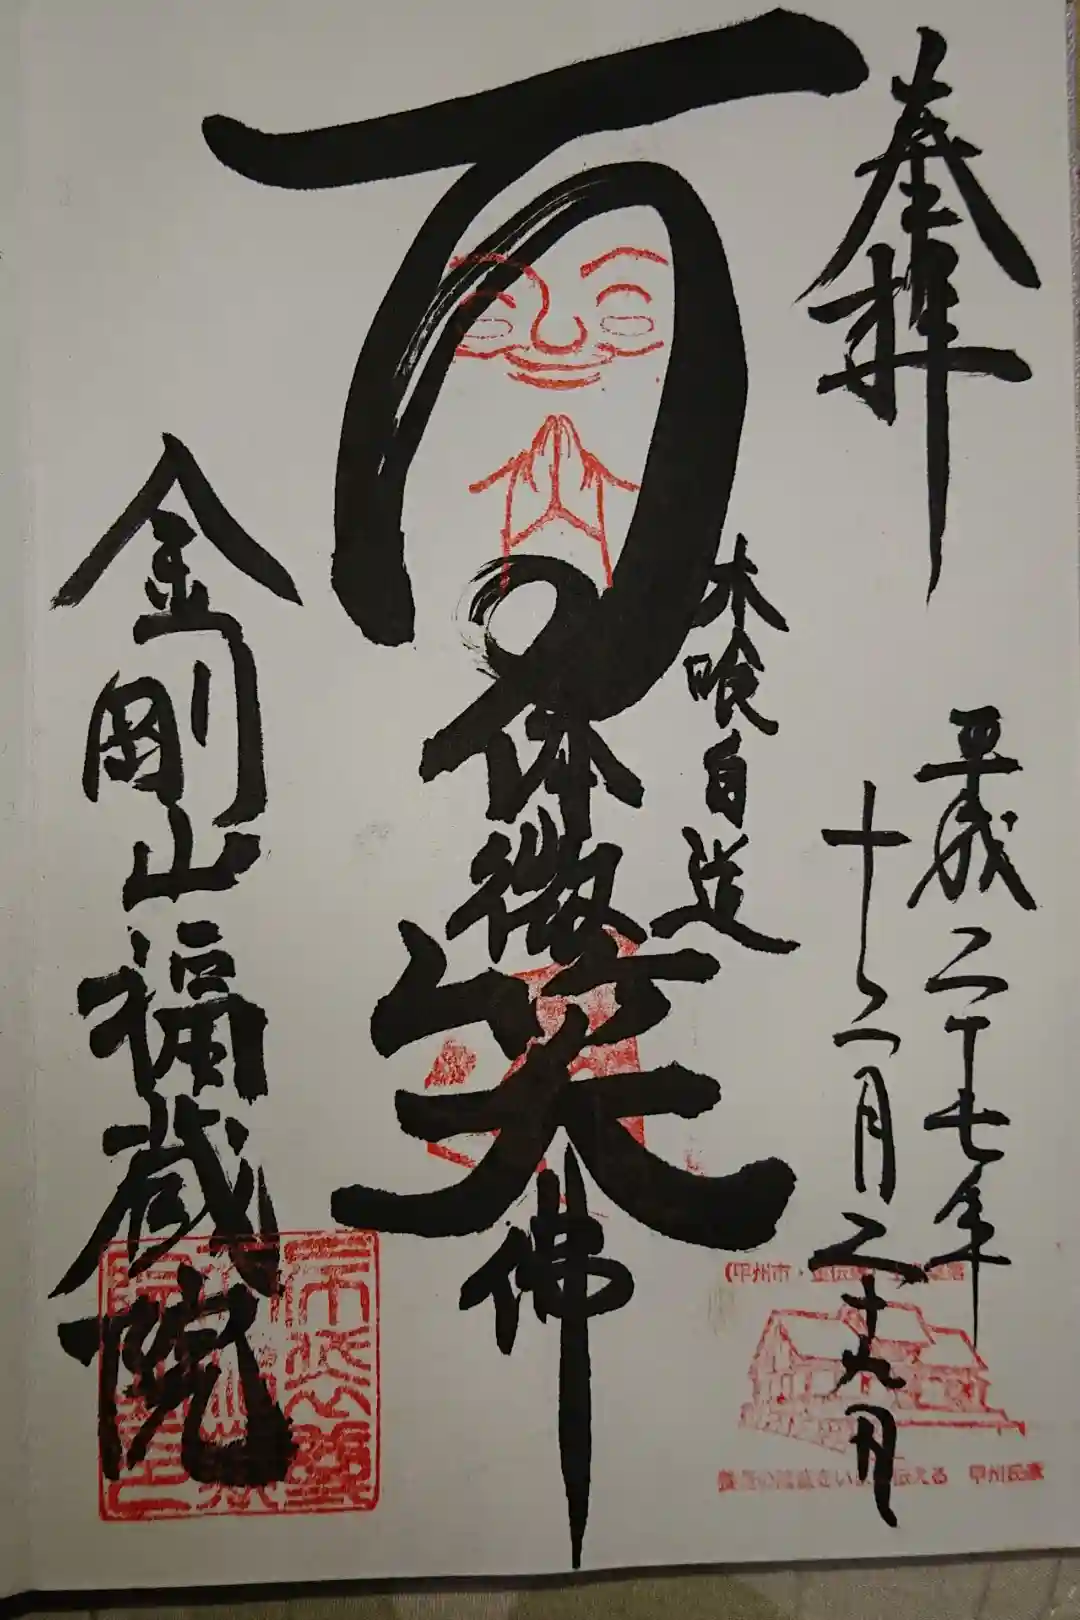 奉拝
平成二十七年
十二月二十九日
木喰自造
百体微笑佛
金剛山福蔵院
甲州市・
伝える 甲州民家